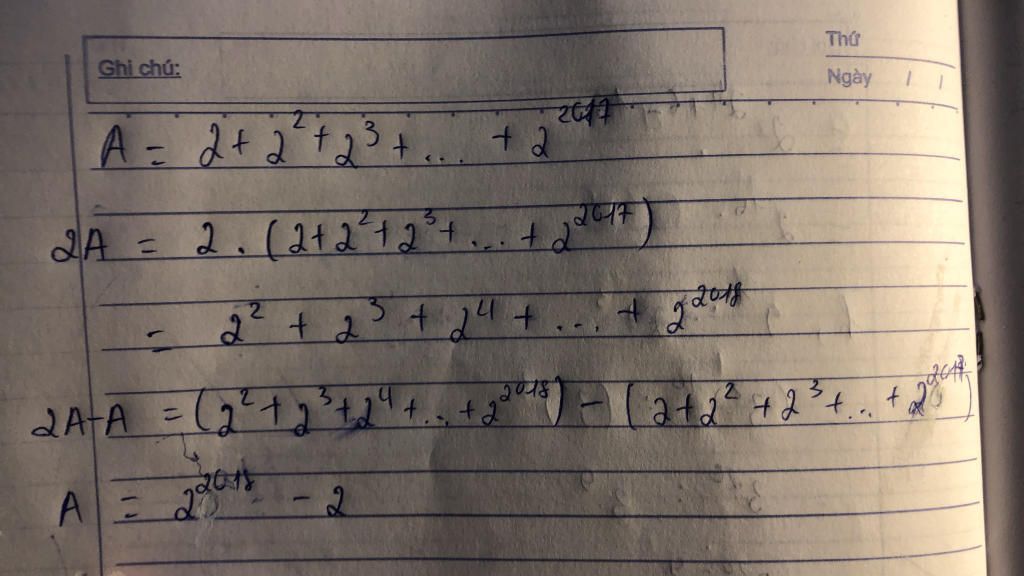 Thứ
Ghi chú:
Ngày / /
A = 2 + 2² + 2³ + ... + 2²⁰¹⁷
2A = 2 . (2 + 2² + 2³ + ... + 2²⁰¹⁷)
= 2² + 2³ + 2⁴ + ... + 2²⁰¹⁸
2A - A = (2² + 2³ + 2⁴ + ... + 2²⁰¹⁸) - (2 + 2² + 2³ + ... + 2²⁰¹⁷)
A = 2²⁰¹⁸ - 2